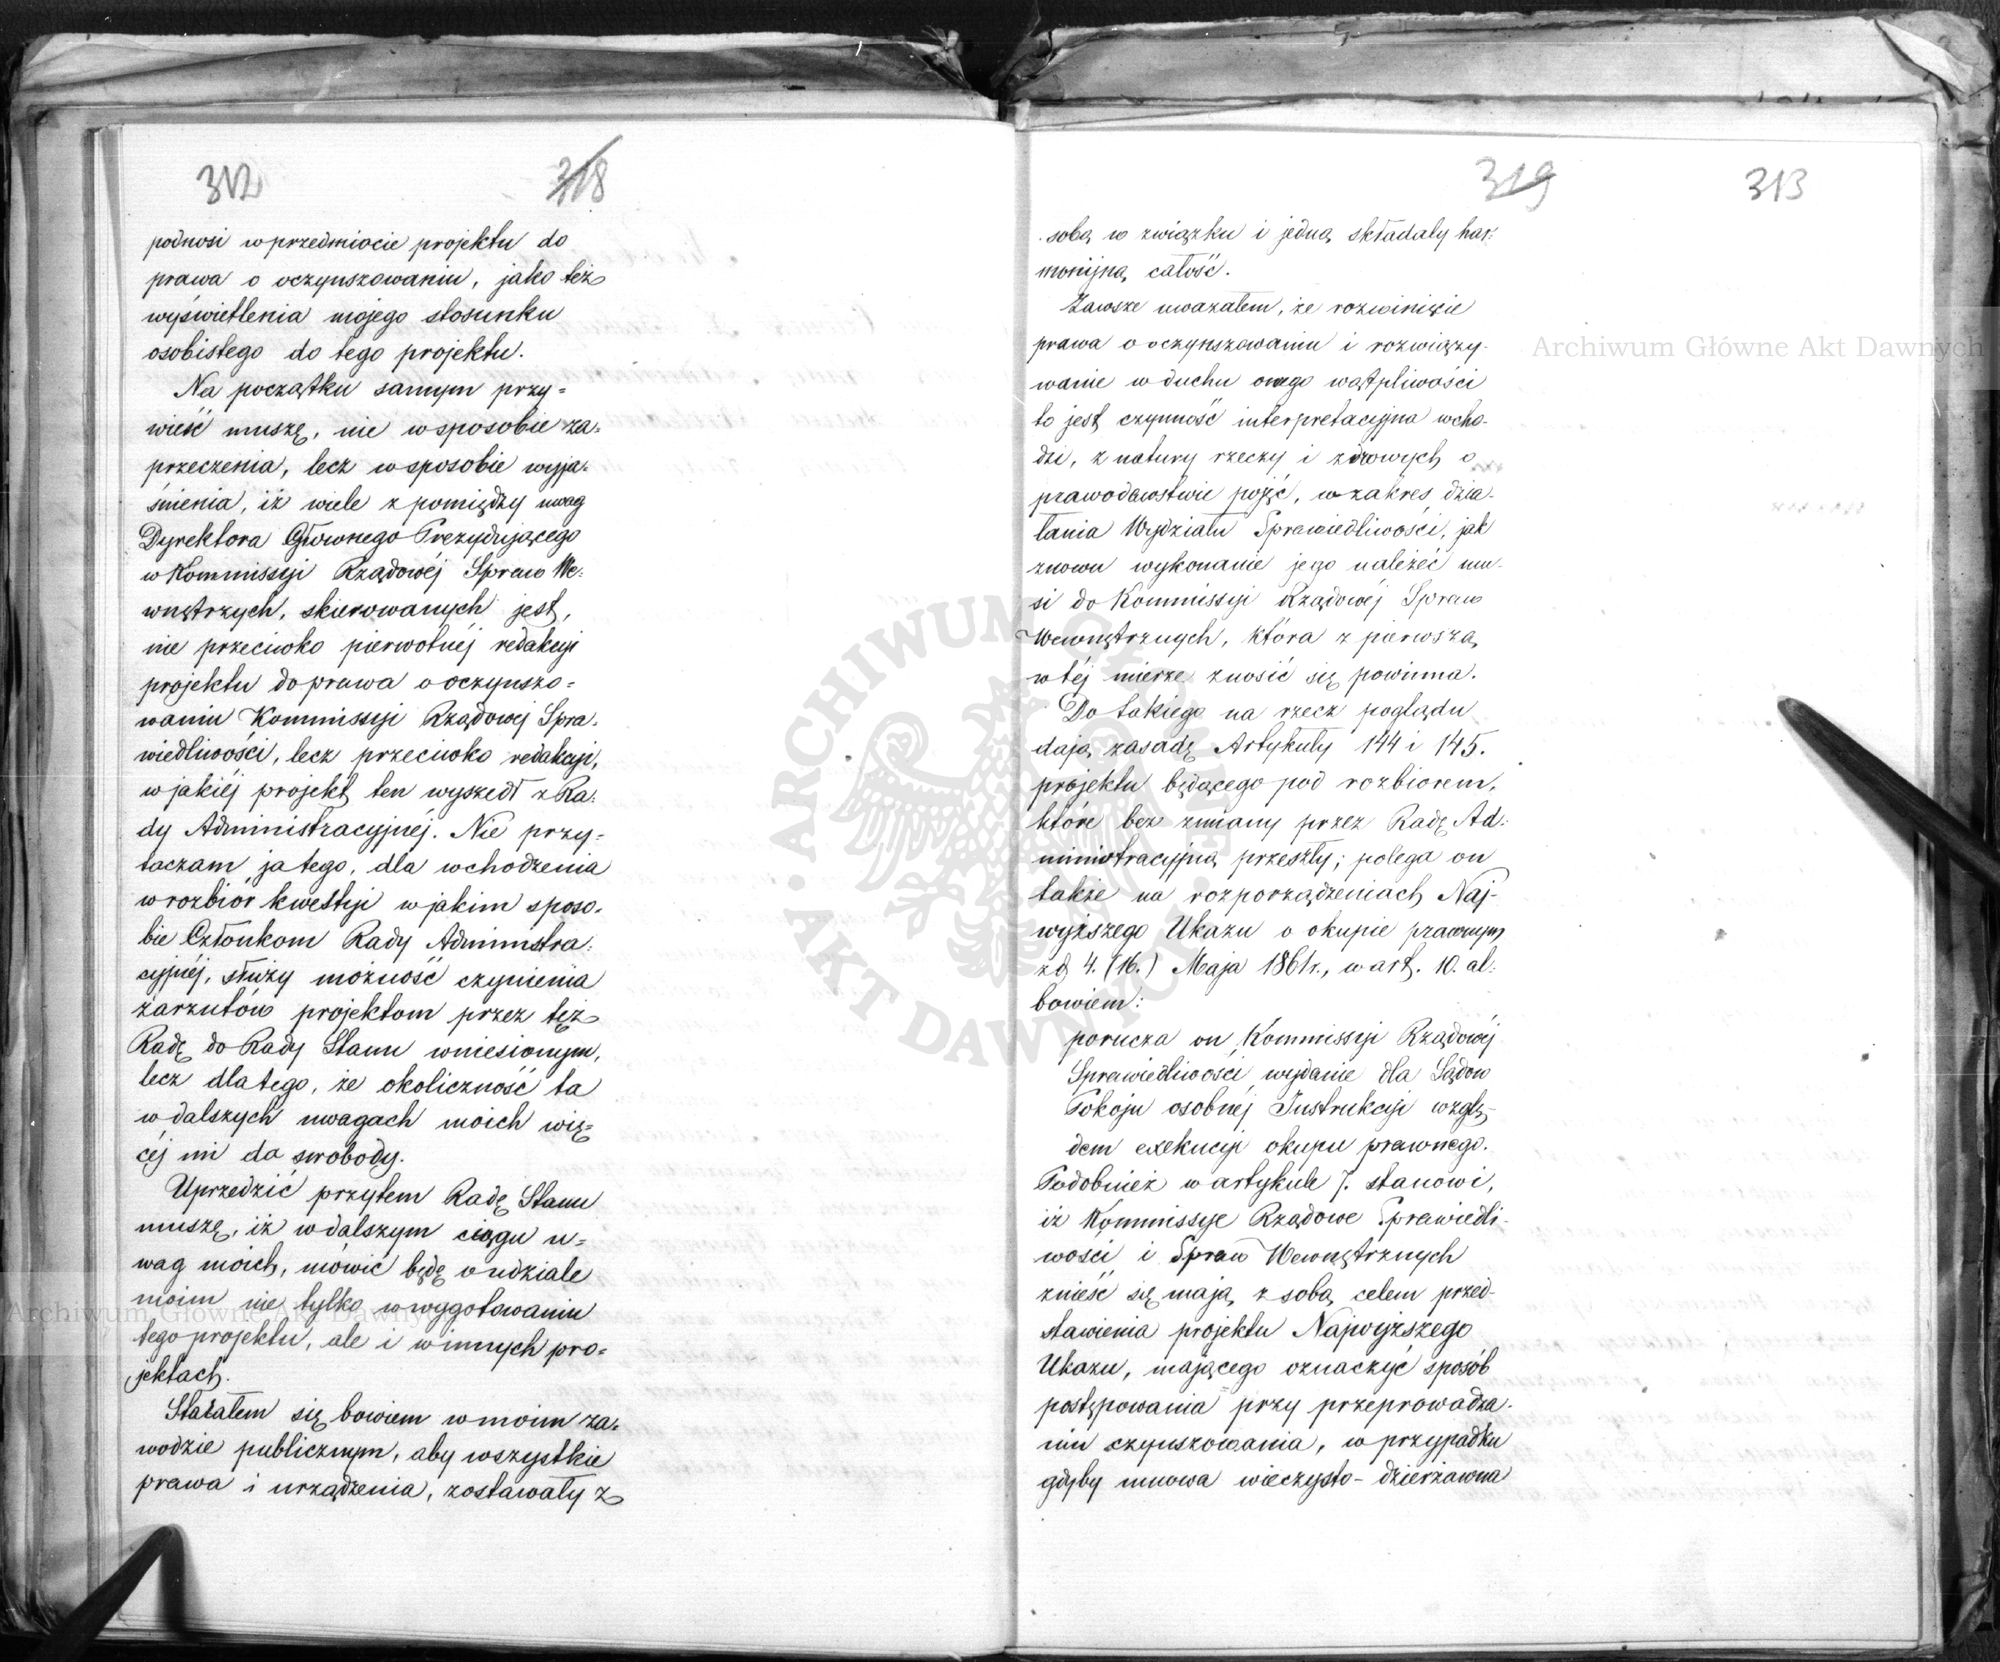 312
318
podnosi w przedmiocie projektu do
prawa o oczynszowaniu, jako też
wyświetlenia mojego stosunku
osobistego do tego projektu.
Na początku samym przy=
wieść muszę, nie w sposobie za=
przeczenia, lecz w sposobie wyja=
śnienia, iż wiele z pomiędzy uwag
Dyrektora Głównego Prezydującego
w Kommissyi Rządowéj Spraw We=
wnętrzych, skierowanych jest,
nie przeciwko pierwotnéj redakcyi
projektu do prawa o oczynszo=
waniu Kommissyi Rządowej Spra=
wiedliwości, lecz przeciwko redakcyi,
w jakiéj projekt ten wyszedł z Ra=
dy Administracyjnéj. Nie przy=
taczam ja tego, dla wchodzenia
w rozbiór kwestyi w jakim sposo=
bie Członkom Rady Administra=
cyjnéj, służy możność czynienia
zarzutów projektom przez też
Radę do Rady Stanu wniesionym,
lecz dla tego, że okoliczność ta
w dalszych uwagach moich wię=
céj mi da swobody.
Uprzedzić przytem Radę Stanu
muszę, iż w dalszym ciągu u=
wag moich, mówić będę o udziale
moim nie tylko w wygotowaniu
tego projektu, ale i w innych pro=
jektach.
Starałem się bowiem w moim za=
wodzie publicznym, aby wszystkie
prawa i urządzenia, zostawały z
319
313
sobą w związku i jedną składały har=
monijną całość.
Zawsze uważałem, że rozwinięcie
prawa o oczynszowaniu i rozwiązy-
wanie w duchu onego wątpliwości
to jest czynność interpretacyjna wcho-
dzi, z natury rzeczy i zdrowych o
prawodawstwie pojęć, w zakres dzia-
łania Wydziału Sprawiedliwości, jak
znowu wykonanie jego należéć mu-
si do Kommissyi Rządowéj Spraw
Wewnętrznych, która z pierwszą
w téj mierze znosić się powinna.
Do takiego na rzecz poglądu
dają zasadę Artykuły 144 i 145.
projektu będącego pod rozbiorem,
które bez zmiany przez Radę Ad=
ministracyjną przeszły; polega on
także na rozporządzeniach Naj-
wyższego Ukazu o okupie prawnym
z d. 4. (16.) Maja 1861 r., w art. 10. al=
bowiem:
porucza on Kommissyi Rządowéj
Sprawiedliwości wydanie dla Sądów
Pokoju osobnéj Instrukcyi wzglę-
dem exekucyi okupu prawnego.
Podobnież w artykule 7. stanowi,
iż Kommissye Rządowe Sprawiedli-
wości i Spraw Wewnętrznych
znieść się mają z sobą celem przed-
stawienia projektu Najwyższego
Ukazu, mającego oznaczyć sposób
postępowania przy przeprowadza-
niu czynszowania, w przypadku
gdyby umowa wieczysto-dzierżawna
Archiwum Główne Akt Dawnych
Archiwum Główne Akt Dawnych
ARCHIWUM GŁÓWNE AKT DAWNYCH